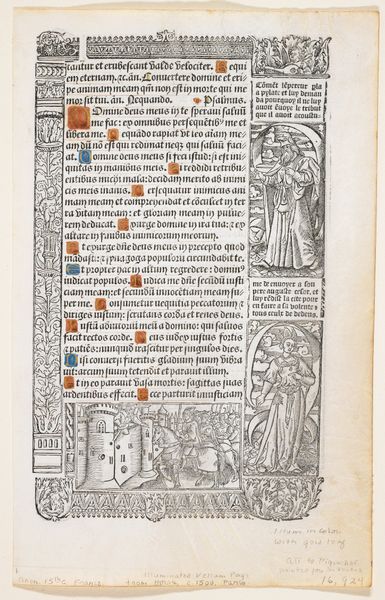 tantur et erubescant valde velociter. Requi
em eternam. ℣.añ. Convertere domine et eri-
pe animam meam qm̄ non est in morte qui me
mor sit tui. añ. Nequando. Psalmus.
Domine deus meus in te speravi saluū
me fac: ex omnibus persequētib9 me et
libera me. Nequādo rapiat vt leo aīam me-
am dū nō est qui redimat neqz qui saluū faci
at. Domine deus meus si feci istud: si est ini-
quitas in manibus meis. Si reddidi retribu-
entibus michi mala: decidam merito ab inimi
cis meis inanis. Persequatur inimicus ani
mam meam et comprehendat et cōculcet in ter
ra vitam meam: et gloriam meam in pulue-
rem deducat. Exurge domine in ira tua: et ex
altare in finibus inimicorum meorum.
Et exurge dñe deus meus in precepto quod
madasti: et synagoga populorū circundabit te.
Et propter hac in altum regredere: domin9
iudicat populos. Iudica me dñe secūdū iusti-
ciam meam: et secundū innocētiam meam su-
per me. Consumetur nequitia peccatorum et
diriges iustum: scrutans corda et renes deus.
Iustū adiutoriū meū a domino: qui saluos
facit rectos corde. Deus iudex iustus fortis
et patiēs: nunquid irascitur per singulos dies.
Nisi conuersi fueritis gladium suum vibra
uit: arcum suum tetendit et parauit illum.
Et in eo parauit vasa mortis: sagittas suas
ardentibus effecit. Ecce parturit iniusticiam
Cōmēt lēpereur pla
a pylate et luy deman
da pourquoy il ne luy
avoit envoye le tribut
que il avoit acoustu-
me de envoyer a son
pere auguste cesar, et
luy rēdist la cite pour
en faire a sa volente et
tous ceulx de dedens.
Illum. in color
with gold leaf
Att. to Pigouchet
Anon. 15th C. France
Illuminated Vellum Page
from HORAE c. 1500, Paris
16,924